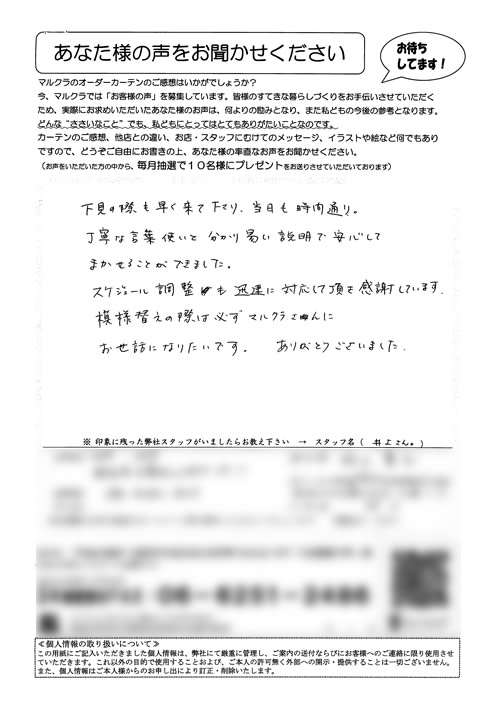 あなた様の声をお聞かせください
お待ち
してます！
マルクラのオーダーカーテンのご感想はいかがでしょうか？
今、マルクラでは「お客様の声」を募集しています。皆様のすてきな暮らしづくりをお手伝いさせていただく
ため、実際にお求めいただいたあなた様のお声は、何よりの励みとなり、また私どもの今後の参考となります。
どんな“ささいなこと”でも、私どもにとってはとてもありがたいことなのです。
カーテンのご感想、他店との違い、お店・スタッフにむけてのメッセージ、イラストや絵など何でもあり
ですので、どうぞご自由にお書きの上、あなた様の率直なお声をお聞かせください。
（お声をいただいた方の中から、毎月抽選で１０名様にプレゼントをお送りさせていただいております）
下見の際も早く来て下さり、当日も時間通り。
丁寧な言葉使いと分かり易い説明で安心して
まかせることができました。
スケジュール調整も迅速に対応して頂き感謝しています。
模様替えの際は必ずマルクラさんに
お世話になりたいです。 ありがとうございました。
※印象に残った弊社スタッフがいましたらお教え下さい → スタッフ名（ 井上さん。）
06-6251-2486
≪個人情報の取り扱いについて≫
この用紙にご記入いただきました個人情報は、弊社にて厳重に管理し、ご案内の送付ならびにお客様へのご連絡に限り使用させ
ていただきます。これ以外の目的で使用することおよび、ご本人の許可無く外部への開示・提供することは一切ございません。
また、個人情報はご本人様からのお申し出により訂正・削除いたします。